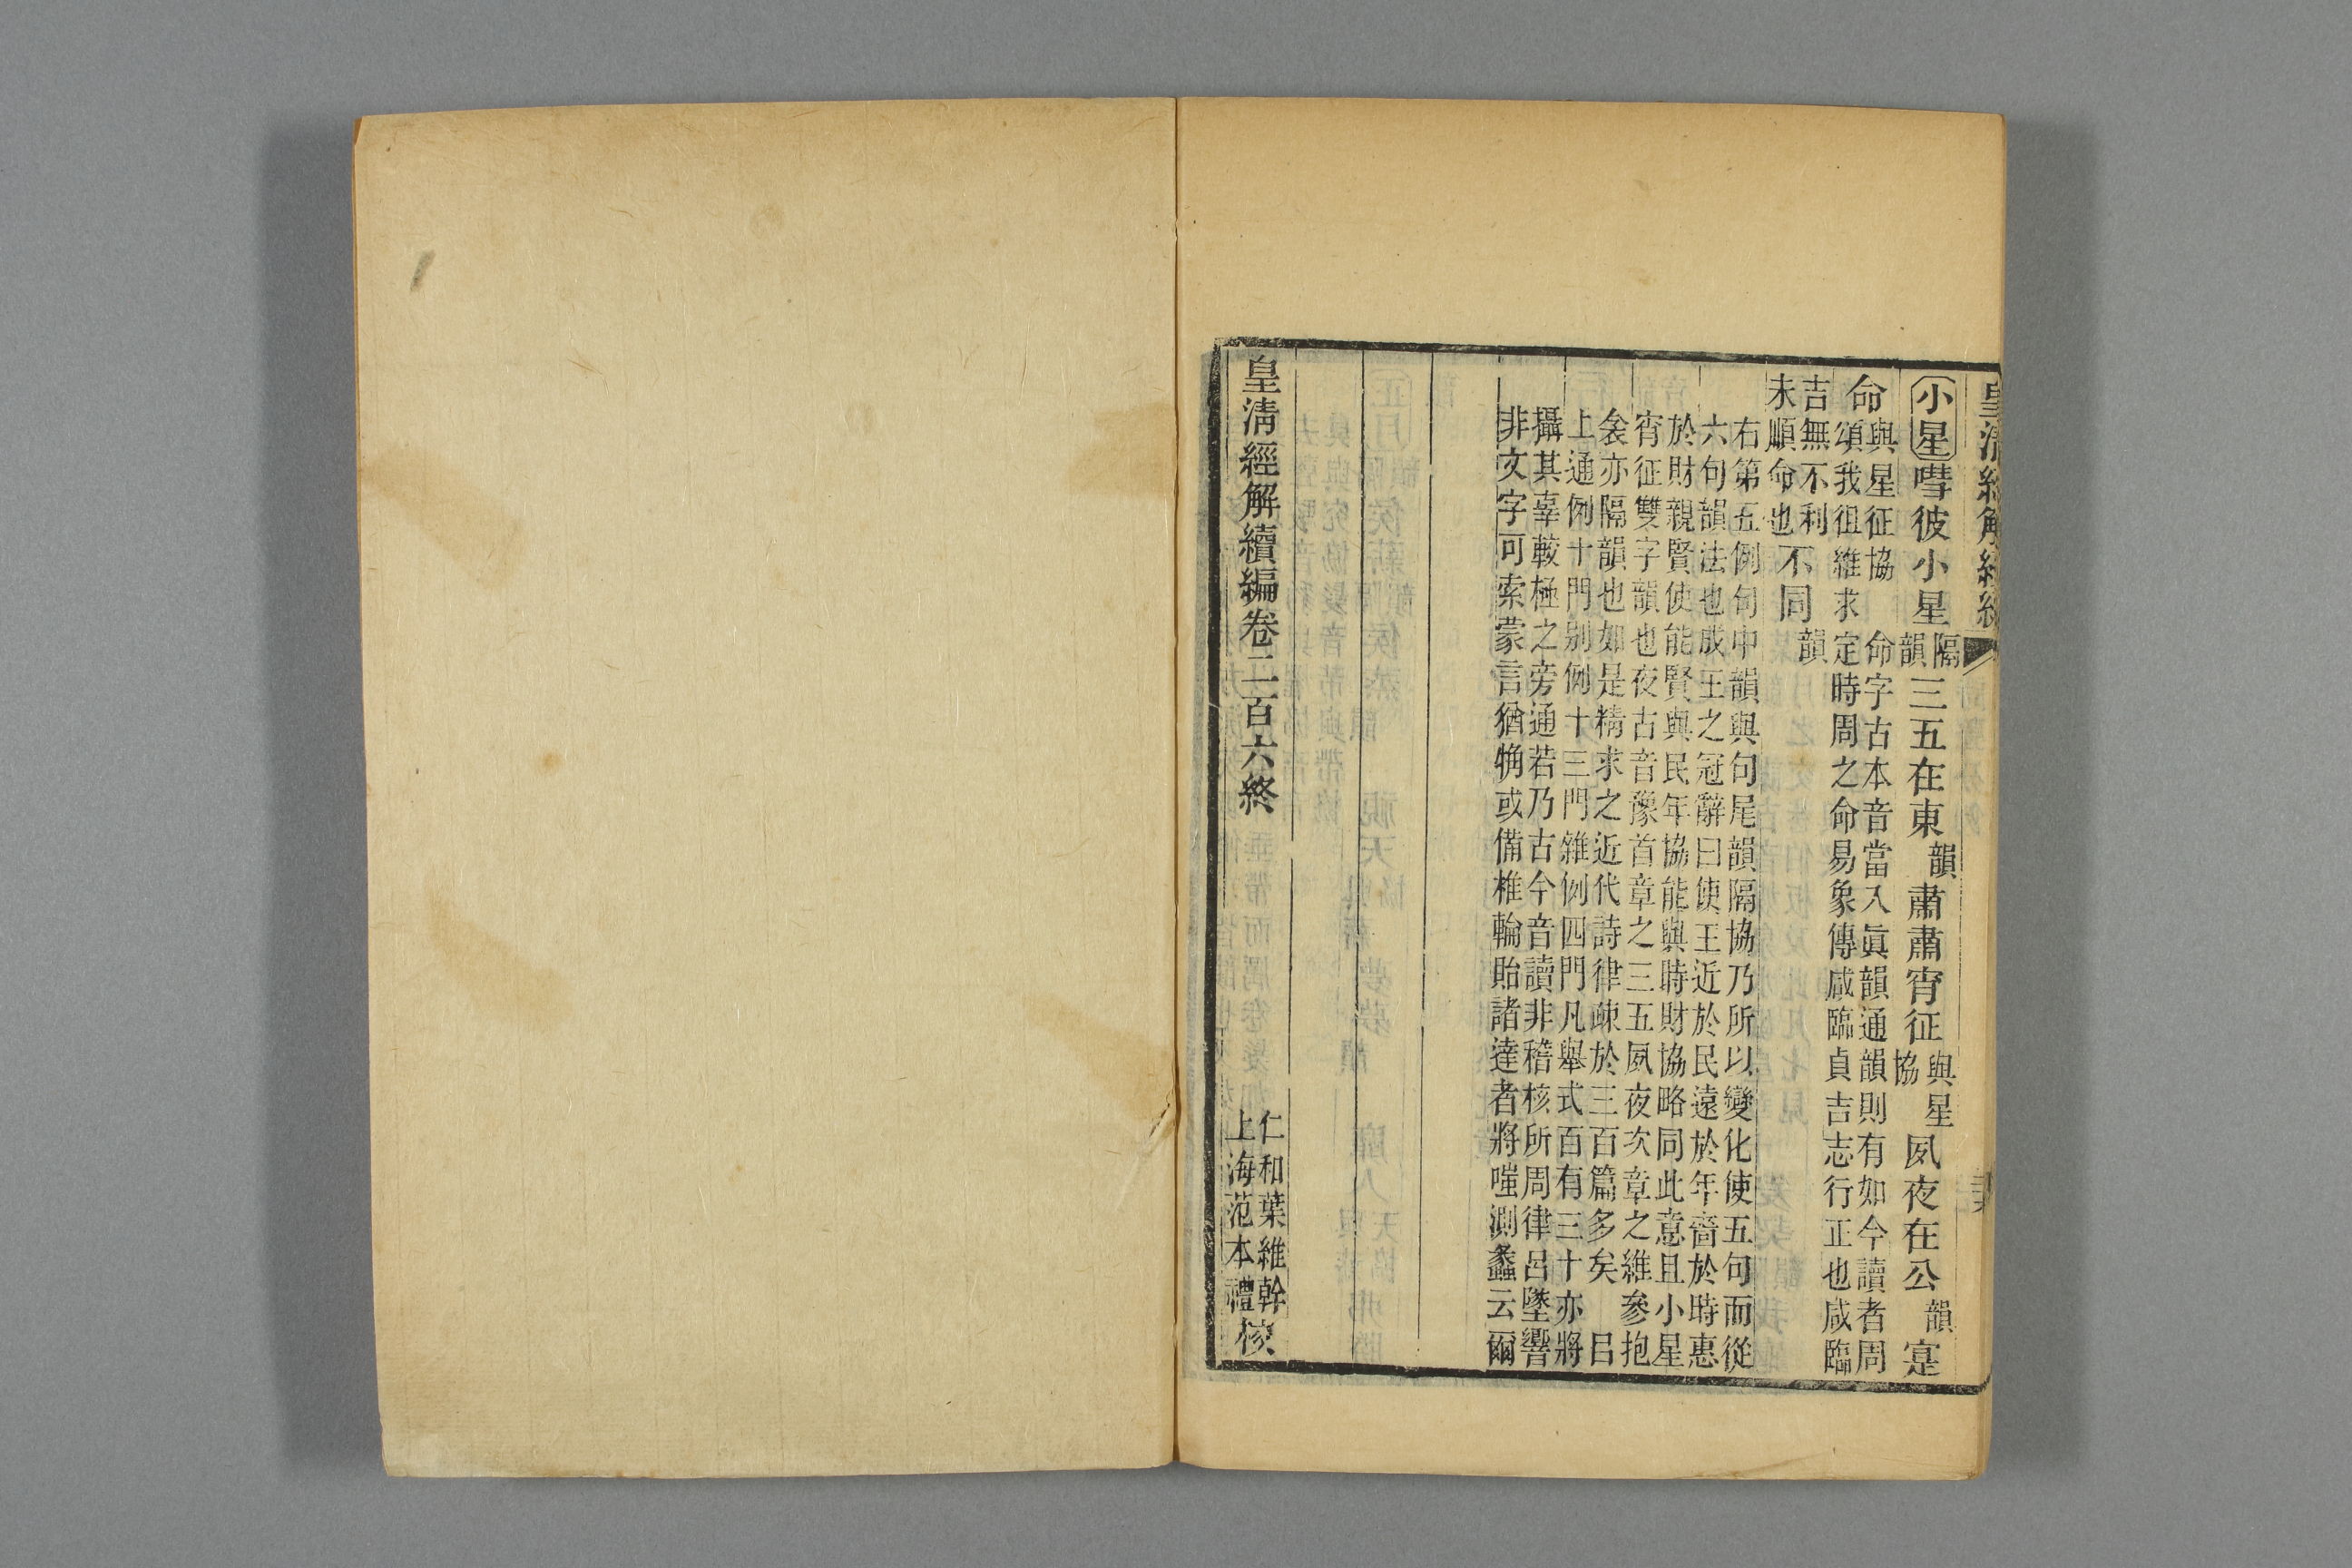 皇清經解續編
小星嘒彼小星隔韻三五在東韻肅肅宵征與星協夙夜在公韻寔
命與星征協命字古本音當入眞韻通韻則有如今讀者周
頌我徂維求定時周之命易象傳咸臨貞吉志行正也咸臨
吉無不利
未順命也不同韻
右第五例句中韻與句尾韻隔協乃所以變化使五句而從
六句韻法也成王之冠辭曰使王近於民遠於年嗇於時惠
於財親賢使能賢與民年協能與時財協略同此意且小星
宵征雙字韻也夜古音豫首章之三五夙夜次章之維參抱
衾亦隔韻也如是精求之近代詩律疎於三百篇多矣 㠯
上通例十門别例十三門雜例四門凡舉式百有三十亦將
攝其辜較極之旁通若乃古今音讀非稽核所周律呂墜響
非文字可索蒙言猶觕或備椎輪貽諸達者將嗤測蠡云爾
皇清經解續編卷二百六終
仁和葉維幹
上海范本禮校